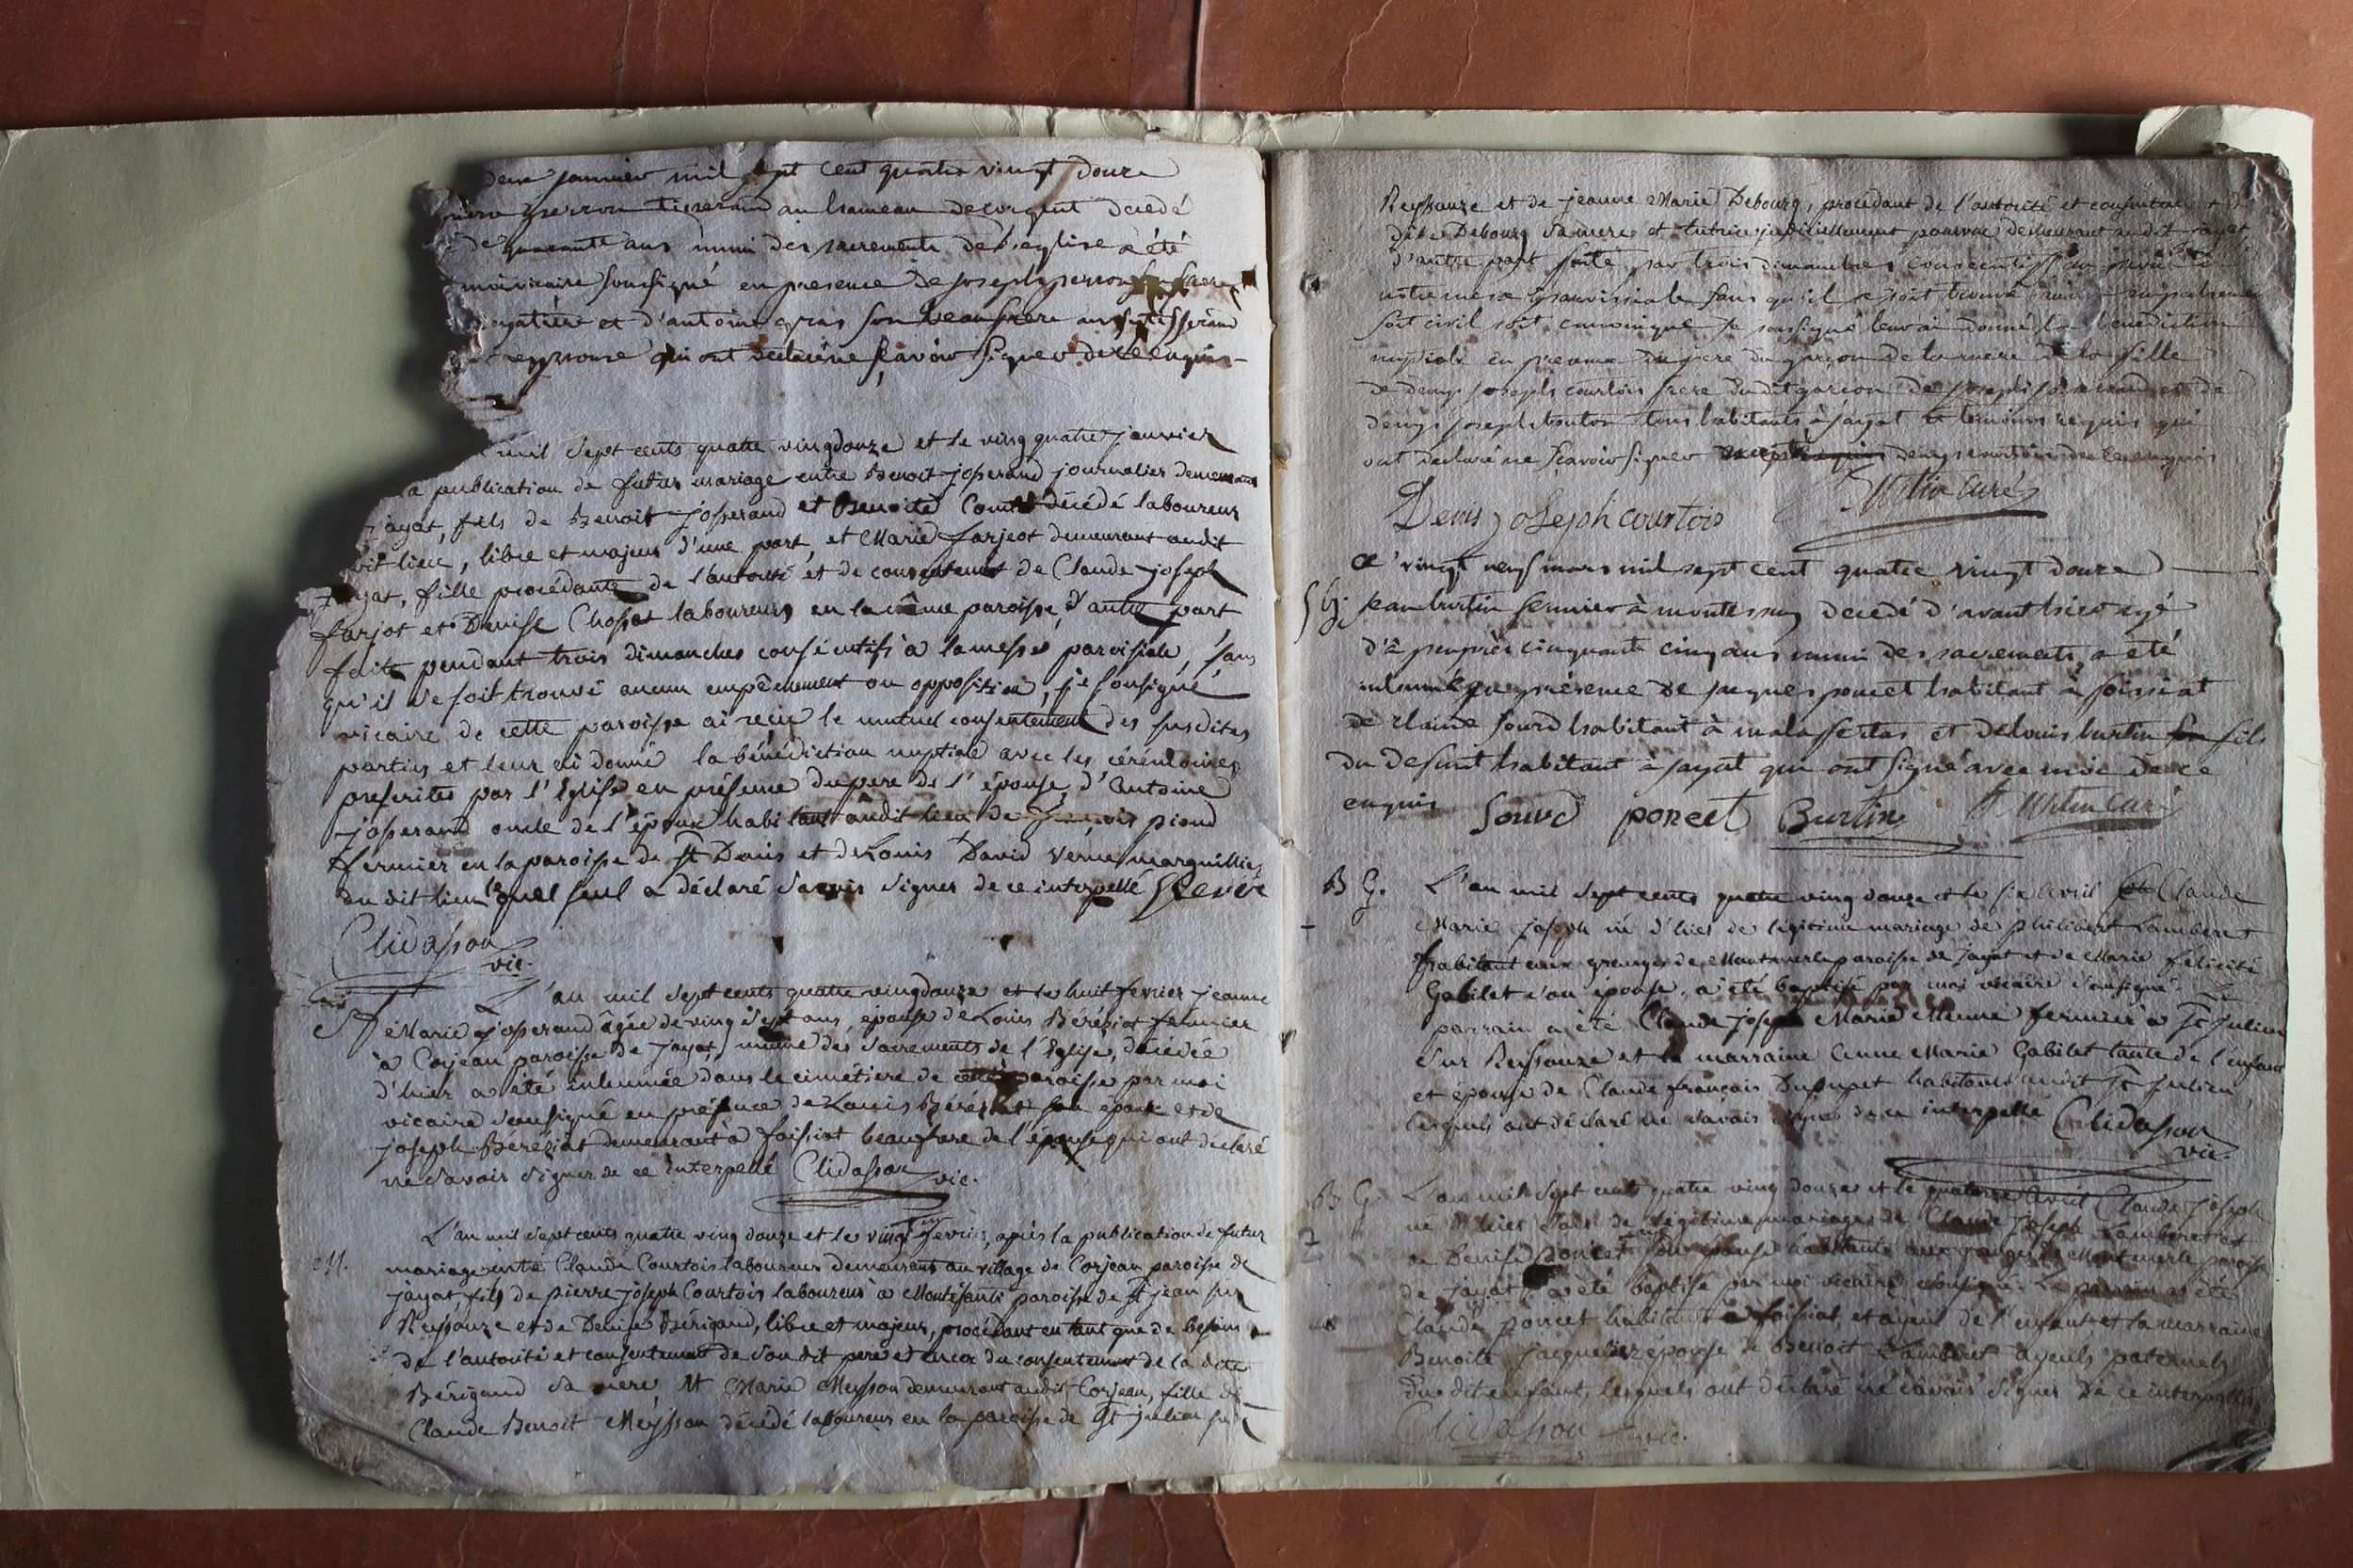 janvier mil sept cent quatre vingt douze
tisserand au hameau de corgent decedé
de quarante ans muni des sacrements de l'eglise a été
moi vicaire soussigné en presence de joseph perron son frere
et d'antoine gras son beau frere aussi tisserand
qui ont declaré ne sçavoir signer de ce enquis
mil sept cents quatre vingdouze et le ving quatre janvier
la publication de futur mariage entre Benoit josserand journalier demeurant
jayat, fils de Benoit josserand et Benoite Comte décédé laboureur
dit lieu, libre et majeur d'une part, et Marie farjeot demeurant audit
jayat, fille procédante de l'autorité et de consentement de Claude joseph
farjot et Denise Chossat laboureurs en la même paroisse, d'autre part
faite pendant trois dimanches consécutifs à la messe paroissiale, sans
qu'il se soit trouvé aucun empêchement ou opposition, je sousigné
vicaire de cette paroisse ai reçu le mutuel consentement des susdites
parties et leur ai donné la bénédiction nuptiale avec les cérémonies
prescrites par l'Eglise en présence du pere de l'épouse, d'Antoine
josserand oncle de l'époux habitant audit lieu de françois pioud
fermier en la paroisse de St Denis et de Louis David Verne marguillier
du dit lieu lequel seul a déclaré savoir signer de ce interpellé Verne
Clidasson
vic.
L'an mil sept cents quatre vingdouze et le huit fevrier jeanne
Marie josserand âgée de ving sept ans, epouse de Louis Béréziat fermier
à Corjean paroisse de jayat, munie des sacrements de l'Eglise, décédée
d'hier a été inhumée dans le cimétiere de cette paroisse par moi
vicaire sousigné en présence de Louis Béréziat son epoux et de
joseph Béréziat demeurant à foissiat beaufrere de l'épouse qui ont declaré
ne savoir signer de ce interpellé Clidasson vic.
L'an mil sept cents quatre ving douze et le vingt fevrier, après la publication de futur
M. mariage entre Claude Courtois laboureur demeurant au village de Corjean paroisse de
jayat fils de pierre joseph Courtois laboureur à Montésanti paroisse de St jean sur
Reissouze et de Denise Bérigaud, libre et majeur, procédant en tant que de besoin
de l'autorité et consentement de son dit pere et encor du consentement de la dite
Bérigaud sa mere, et Marie Meysson demeurant audit Corjean, fille de
Claude Benoit Meysson décédé laboureur en la paroisse de St julien sur
Reyssouze et de jeanne Marie Debourg, procedant de l'autorité et consentement de
dite Debourg sa mere et tutrice judiciellement pourvue demeurant audit jayat
d'autre part faite par trois dimanches consecutifs au prone de
notre messe paroissiale sans qu'il se soit trouvé aucun empechement
soit civil soit canonique je soussigné leur ai donné la benediction
nuptiale en presence du pere du garçon de la mere de la fille
de denys joseph courtois frere dudit garçon de joseph josserand et de
denys joseph bouton tous habitants à jayat temoins requis qui
ont declaré ne sçavoir signer denys courtois de ce enquis
Denis joseph courtois curé
Ce vingt neuf mars mil sept cent quatre vingt douze
Jean burtin fermier à montessuy decedé d'avant hier agé
d'à peu près cinquante cinq ans muni des sacrements, a été
inhumé en présence de jacques poncet habitant à foissiat
de claude sourd habitant à malassertas et de louis burtin fils
du defunt habitant à jayat qui ont signé avec moi de ce
enquis Sourd poncet Burtin curé
B G. L'an mil sept cents quatre ving douze et le six Avril Claude
Marie joseph né d'hier de légitime mariage de philibert Lamberet
habitant aux granges de Montmerle paroisse de jayat et de Marie félicité
Gabilet son épouse, a été baptisé par moi vicaire sousigné. Le
parrain a été Claude joseph Marie fermier à St julien
sur Reissouze et la marraine Anne Marie Gabilet tante de l'enfant
et épouse de Claude françois Dupupet habitants audit St julien,
lesquels ont déclaré ne savoir signer de ce interpellé Clidasson
vic.
B G. L'an mil sept cents quatre ving douze et le quatorze avril Claude joseph
né d'hier de légitime mariage de Claude joseph Lamberet et
de Denise poncet son épouse habitants aux granges de Montmerle paroisse
de jayat a été baptisé par moi vicaire sousigné. Le parrain a été
Claude poncet habitant à foissiat et ayeul de l'enfant et la marraine
Benoite épouse de Benoit Lamberet ayeuls paternels
du dit enfant, lesquels ont déclaré ne savoir signer de ce interpellés
Clidasson vic.